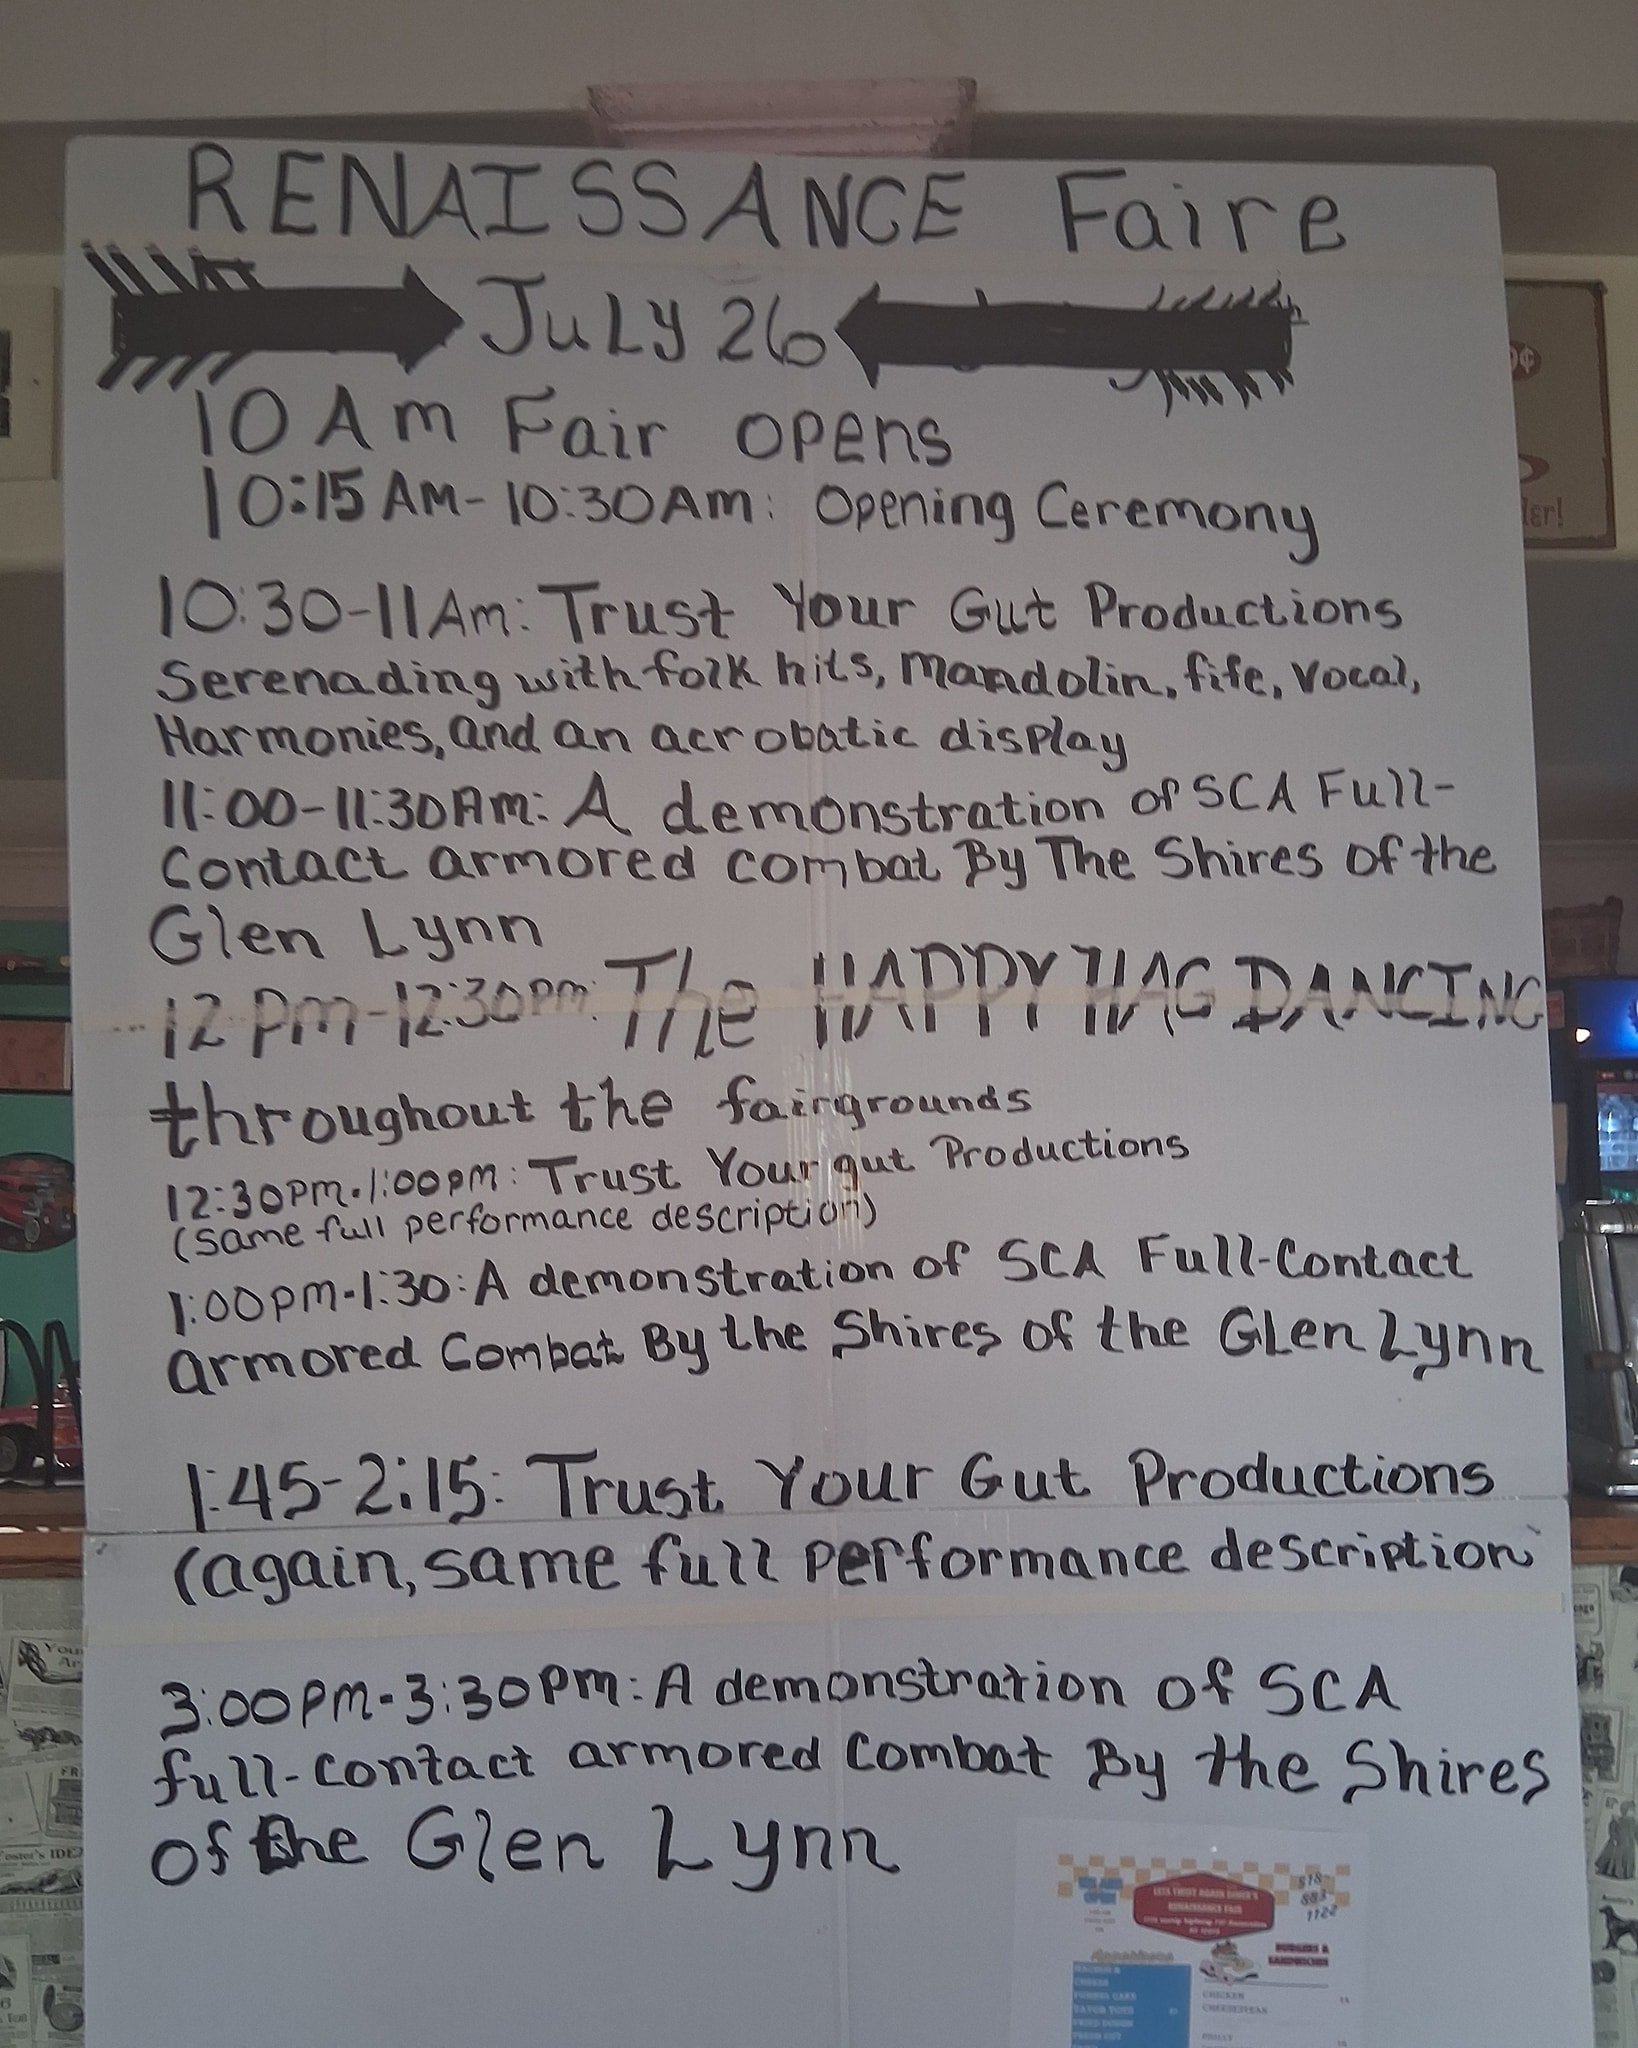 RENAISSANCE Faire
JuLy 26
10 Am Fair opens
10:15 AM-10:30 Am: Opening Ceremony
10:30-11 Am: Trust Your Gut Productions
Serenading with folk hits, Mandolin, fife, vocal,
Harmonies, and an acrobatic display
11:00-11:30 Am: A demonstration of SCA Full-
Contact armored combat By The Shires of the
Glen Lynn
12 pm-12:30pm: The HAPPY HAG DANCING
throughout the fairgrounds
12:30pm-1:00pm: Trust Your gut Productions
(same full performance description)
1:00pm-1:30: A demonstration of SCA Full-Contact
armored Combat By the Shires of the Glen Lynn
1:45-2:15: Trust Your Gut Productions
(again, same full performance description
3:00pm-3:30pm: A demonstration of SCA
full-contact armored combat By the Shires
of the Glen Lynn
518
883
1122
LETS TWIST AGAIN DINER'S
RENAISSANCE FAIR
BURGERS &
SANDWICHES
CHICKEN
CHEESESTEAK
PHILLY